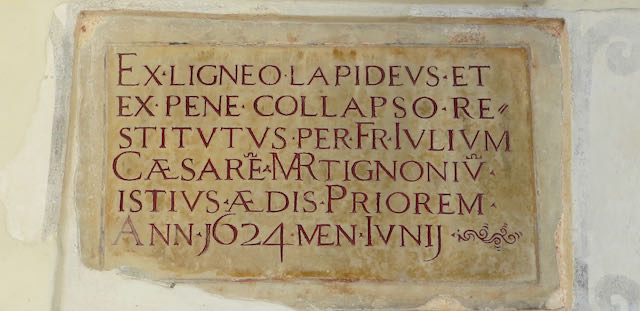 EX·LIGNEO·LAPIDEVS·ET
EX·PENE·COLLAPSO·RE=
STITVTVS·PER·FR·IVLIVM
CÆSARĒ·MARTIGNONIV̄·
ISTIVS·ÆDIS·PRIOREM·
ANN·1624·MEN·IVNIJ·